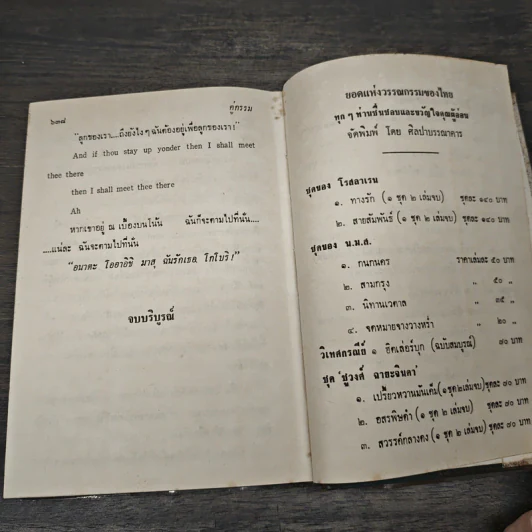 ๖๓๘ คู่กรรม
"ลูกของเรา....ถึงยังไง ๆ ฉันต้องอยู่เพื่อลูกของเรา!"
And if thou stay up yonder then I shall meet
thee there
then I shall meet thee there
Ah
หากเขาอยู่ ณ เบื้องบนโน้น ฉันก็จะตามไปที่นั่น....
....แน่ละ ฉันจะตามไปที่นั่น
"อนาตะ โออาอิชิ มาสุ ฉันรักเธอ, โกโบริ!"
จบบริบูรณ์
ยอดแห่งวรรณกรรมของไทย
ทุก ๆ ท่านชื่นชอบและขวัญใจคุณผู้อ่าน
จัดพิมพ์ โดย ศิลปาบรรณาคาร
ชุดของ โรสลาเรน
๑. ทางรัก (๑ ชุด ๒ เล่มจบ) ชุดละ ๑๔๐ บาท
๒. สายสัมพันธ์ (๑ ชุด ๒ เล่มจบ) ชุดละ ๑๔๐ บาท
ชุดของ น.ม.ส.
๑. กนกนคร ราคาเล่มละ ๕๐ บาท
๒. สามกรุง " ๕๐ "
๓. นิทานเวตาล " ๓๕ "
๔. จดหมายจางวางหร่ำ " ๒๐ "
วิเทศกรณีย์ ๑ ฮิตเล่อร์บุก (ฉบับสมบูรณ์) ๗๐ บาท
ชุด 'ชูวงศ์ ฉายะจินดา'
๑. เปรี้ยวหวานมันเค็ม (๑ ชุด ๒ เล่มจบ) ชุดละ ๘๐ บาท
๒. อสรพิษดำ (๑ ชุด ๒ เล่มจบ) ชุดละ ๘๐ บาท
๓. สวรรค์กลางดง (๑ ชุด ๒ เล่มจบ) ชุดละ ๘๐ บาท